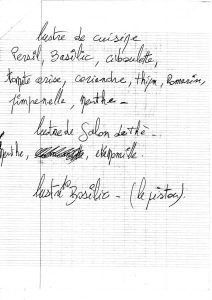 lustre de cuisine
Persil, Basilic, ciboulette,
tomate cerise, coriandre, thym, Romarin,
pimprenelle, menthe -
lustre de Salon de thé -
menthe, camomille.
lustre Basilic - (le pistou).